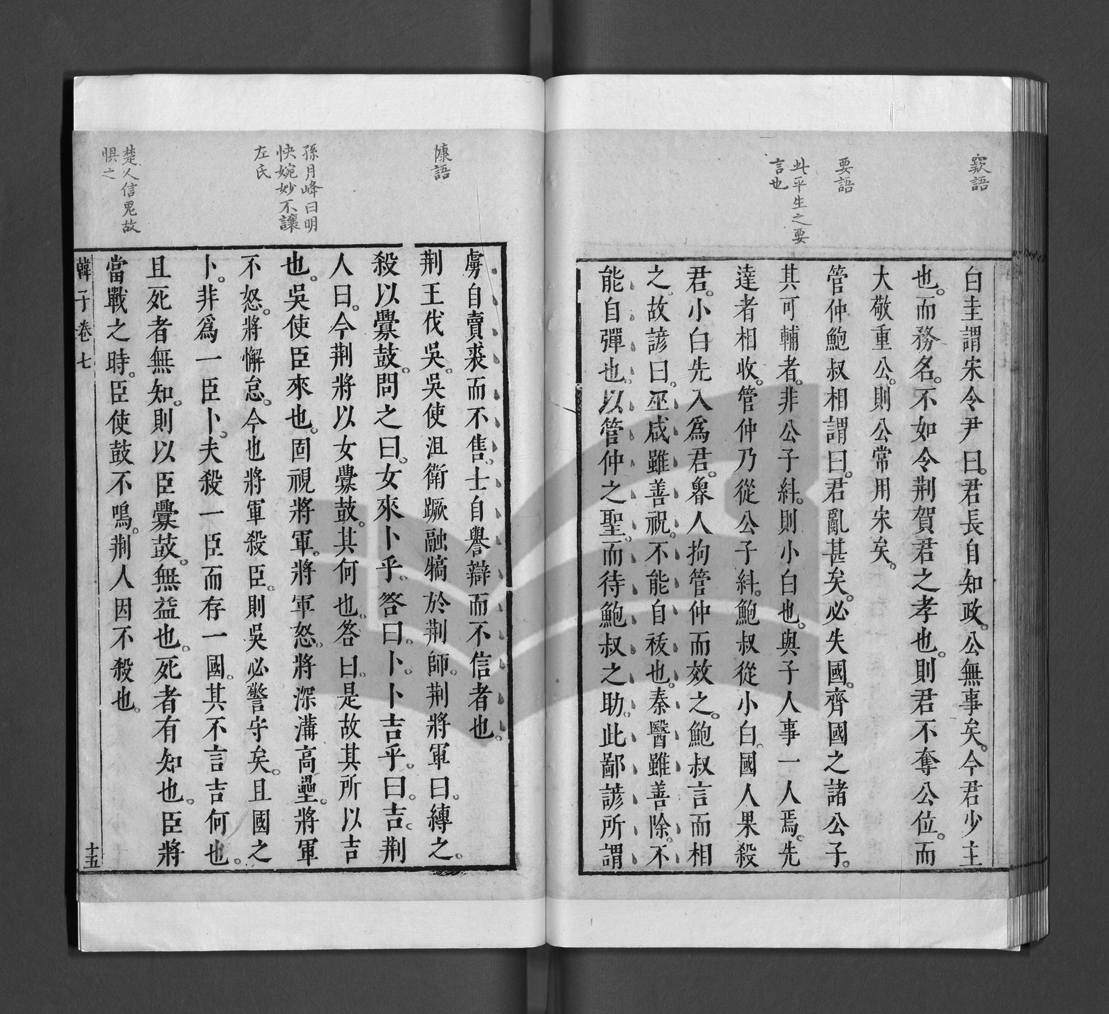 竅語
要語
此平生之要
言也
白圭謂宋令尹曰。君長自知政。公無事矣。今君少主
也。而務名。不如令荆賀君之孝也。則君不奪公位。而
大敬重公。則公常用宋矣。
管仲鮑叔相謂曰。君亂甚矣。必失國。齊國之諸公子。
其可輔者。非公子糾。則小白也。與子人事一人焉。先
達者相收。管仲乃從公子糾。鮑叔從小白。國人果殺
君。小白先入爲君。魯人拘管仲而效之。鮑叔言而相
之。故諺曰。巫咸雖善祝。不能自祓也。秦醫雖善除。不
能自彈也。以管仲之聖。而待鮑叔之助。此鄙諺所謂
慷語
孫月峰曰明
快婉妙不讓
左氏
楚人信鬼故
惧之
虜自賣裘而不售。士自譽辯而不信者也。
荆王伐吳。吳使沮衛蹶融犒於荆師。荆將軍曰。縛之。
殺以釁鼓。問之曰。女來卜乎。答曰。卜。卜吉乎。曰。吉。荆
人曰。今荆將以女釁鼓。其何也。答曰。是故其所以吉
也。吳使臣來也。固視將軍。將軍怒。將深溝高壘。將軍
不怒。將懈怠。今也將軍殺臣。則吳必警守矣。且國之
卜。非爲一臣卜。夫殺一臣而存一國。其不言吉何也。
且死者無知。則以臣釁鼓。無益也。死者有知也。臣將
當戰之時。臣使鼓不鳴。荆人因不殺也。
韓子卷七
十五